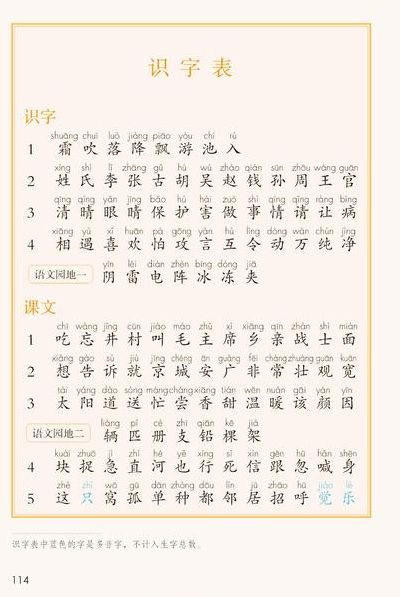 识字表
识字
shuāng chuī luò jiàng piāo yóu chí rù
1 霜 吹 落 降 飘 游 池 入
xìng shì lǐ zhāng gǔ hú wú zhào qián sūn zhōu wáng guān
2 姓 氏 李 张 古 胡 吴 赵 钱 孙 周 王 官
qīng qíng yǎn jīng bǎo hù hài zuò shì qíng qǐng ràng bìng
3 清 晴 眼 睛 保 护 害 做 事 情 请 让 病
xiāng yù xǐ huān pà gōng yán hù lìng dòng wàn chún jìng
4 相 遇 喜 欢 怕 攻 言 互 令 动 万 纯 净
yīn léi diàn zhèn bīng dòng jiā
语文园地一 阴 雷 电 阵 冰 冻 夹
课文
chī wàng jǐng cūn jiào máo zhǔ xí xiāng qīn zhàn shì miàn
1 吃 忘 井 村 叫 毛 主 席 乡 亲 战 士 面
xiǎng gào sù jiù jīng chéng ān guǎng fēi cháng zhuàng guān kuān
2 想 告 诉 就 京 城 安 广 非 常 壮 观 宽
tài yáng dào sòng máng cháng xiāng tián wēn nuǎn gāi yán yīn
3 太 阳 道 送 忙 尝 香 甜 温 暖 该 颜 因
liàng pǐ cè zhī qiān kē jià
语文园地二 辆 匹 册 支 铅 棵 架
kuài zhuō jí zhí hé yě xíng sǐ xìn gēn hū hǎn shēn
4 块 捉 急 直 河 也 行 死 信 跟 忽 喊 身
zhè zhǐ wō gū dān zhǒng dōu lín jū zhāo hū jiào lè
5 这 只 窝 孤 单 种 都 邻 居 招 呼 觉 乐
识字表中蓝色的字是多音字，不计入生字总数。
114